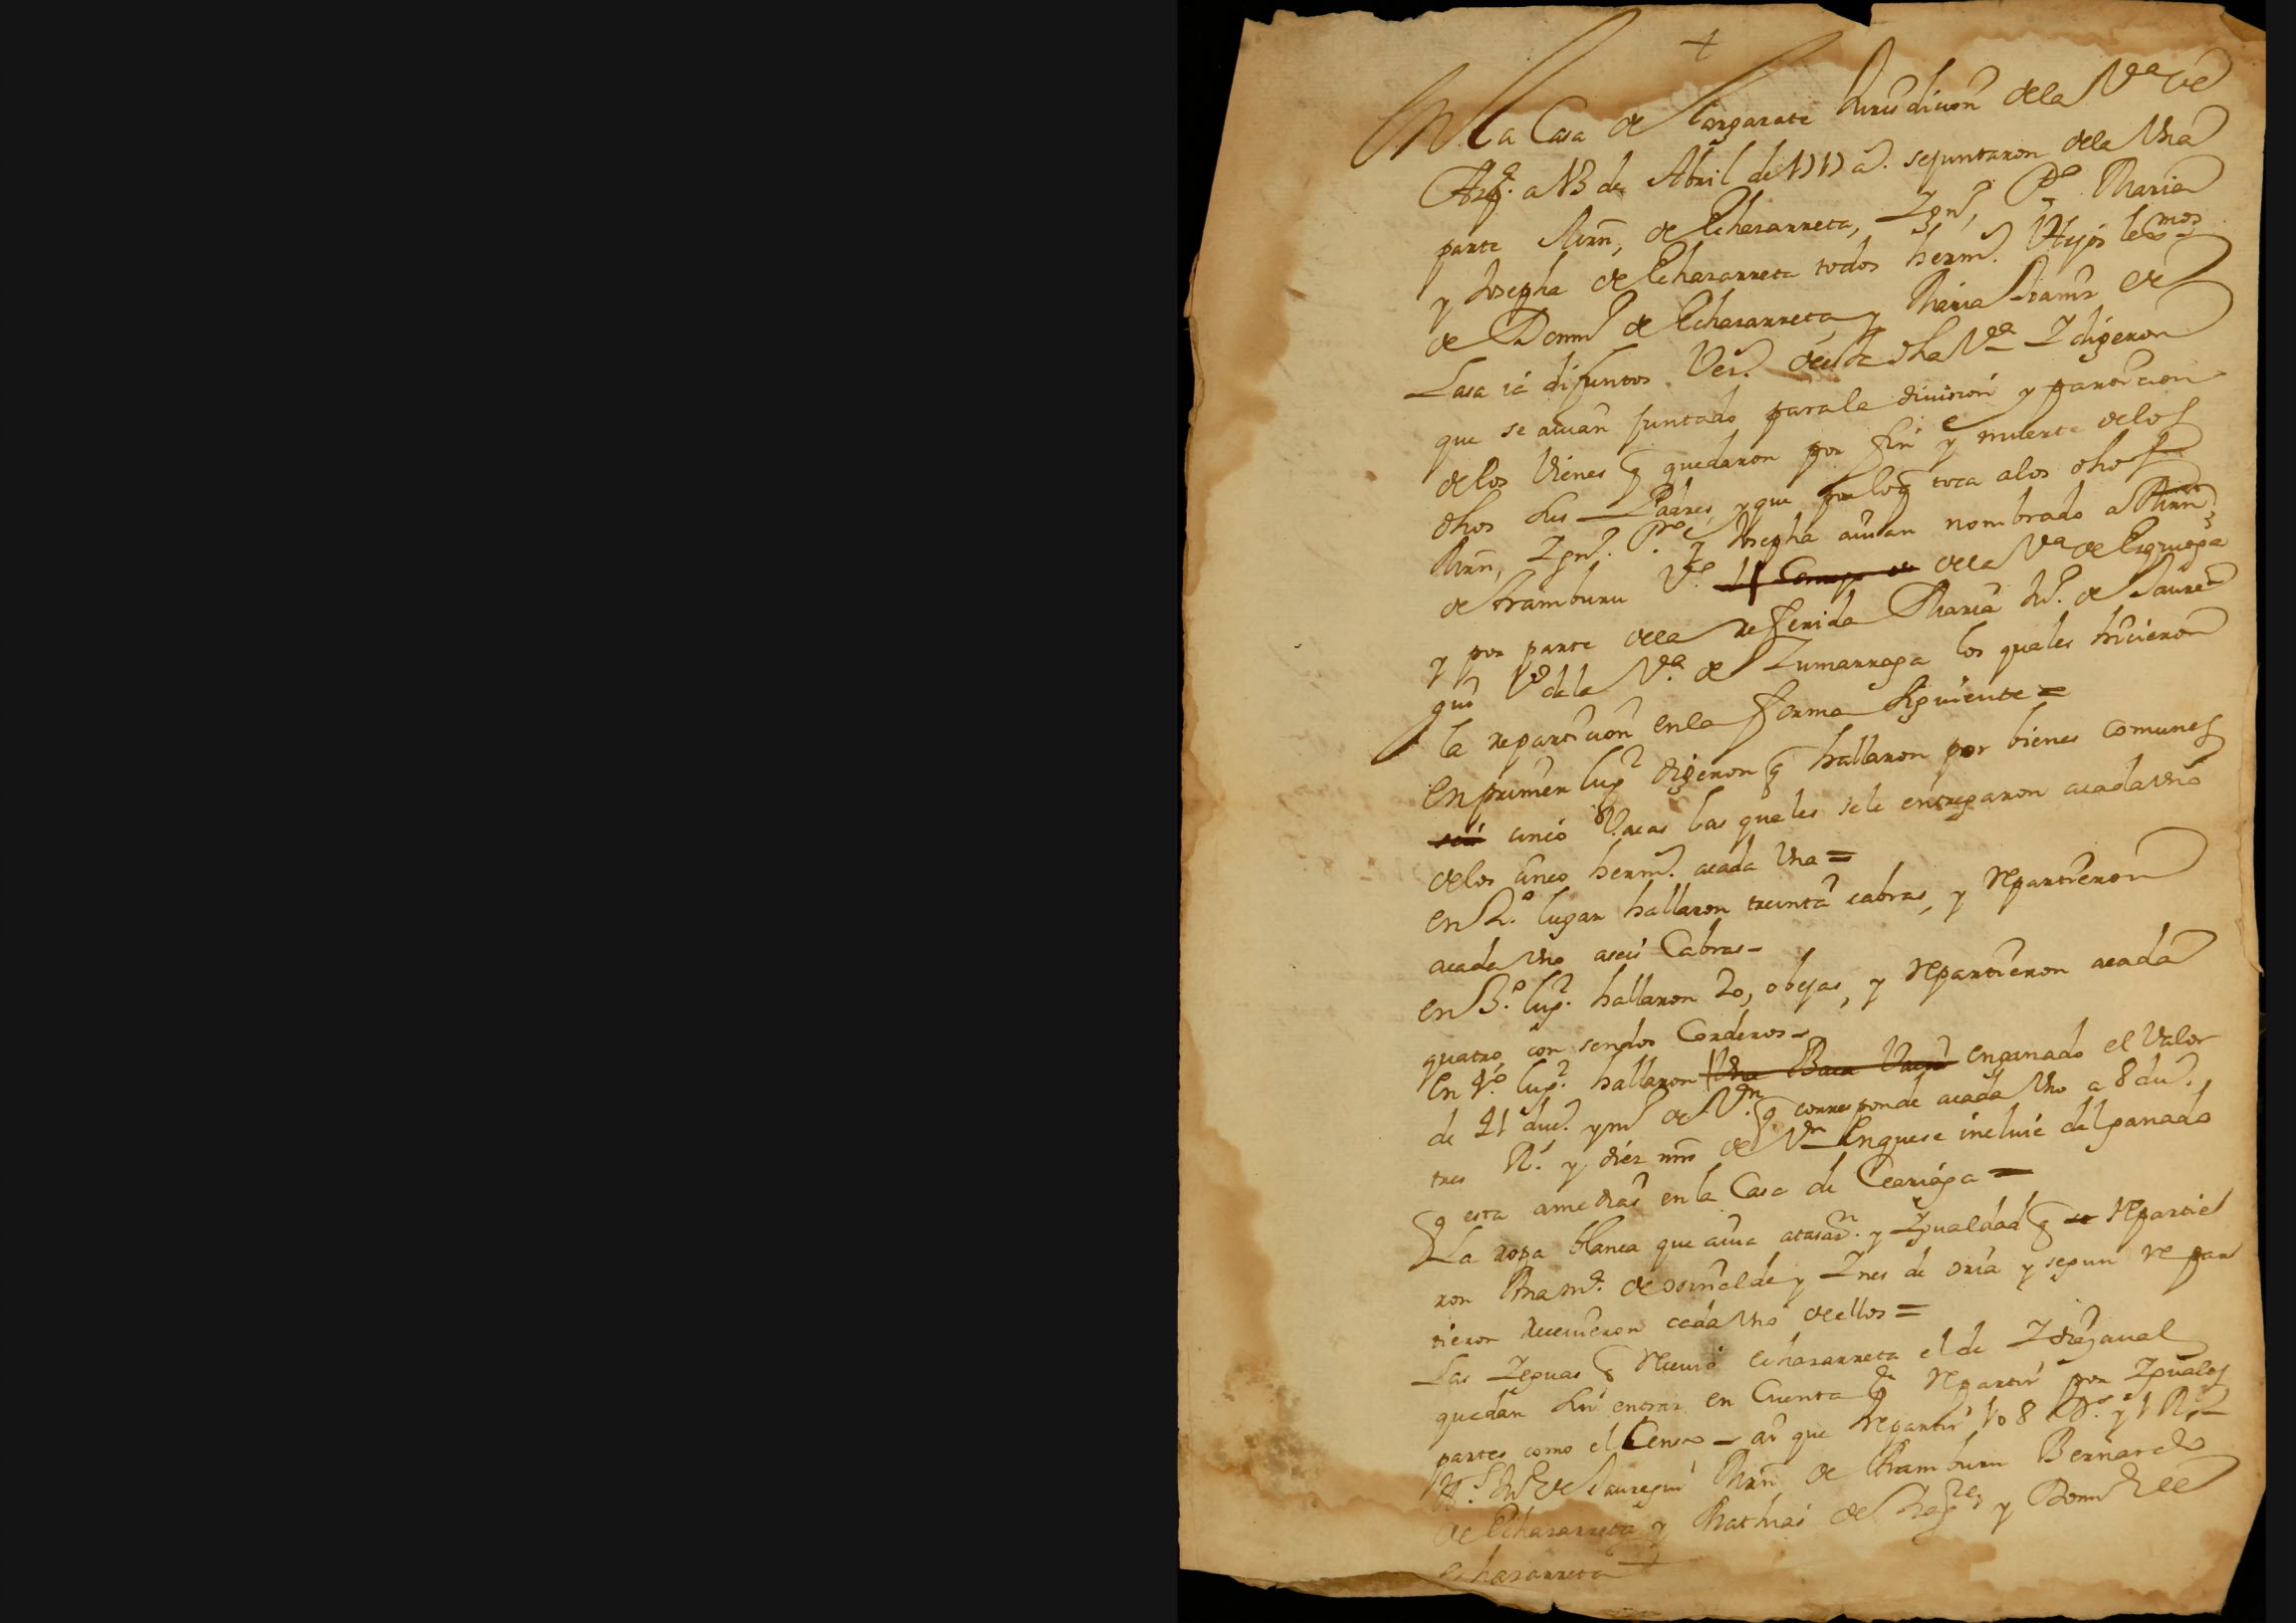 +
En la Casa de Largarate Jurisdicion dela Va de
Azpa. a 13 de Abril de 1717 as. sejuntaron dela Vna
parte Mrn, de Echasarreta, Ygno, Po Maria
y Josepha de Echasarreta todos hermos. Hijos lexmos
de Domo de Echasarreta y Maria Jramos de
Lasa ia difuntos Veos. de dha Va Y digeron
que se auian juntado parala diuision y particion
delos Vienes q quedaron por fin y muerte delos
dhos sus Padres, y que por loq toca alos dhos
Mrn, Ygno. Po. y Josepha auian nombrado a Mrn
de Aramburu Vo. dela Va de Ezquioga
y por parte dela referida Maria Jn. de Jaure
gui Vo dela Va. de Zumarraga los quales hicieron
la reparticion enla forma siguiente =
En primer lugr digeron q hallaron por bienes comunes
seis cinco Vacas las quales sele entregaron acadavno
delos cinco hermos. acada Vna =
en 2.o lugar hallaron treinta cabras, y repartieron
acada Vno aseis Cabras -
en 3.o lugr. hallaron 20, obejas, y repartieron acada
quatro, con sendos Corderos -
En 4.o lugr. hallaron Vna Baca Vacuno enganado el Valor
de 41 ducs. y ms de Vn. q corresponde acada Vno a 8 dus.
tres Rs. y diez mrs de Vn Enquese incluie el ganado
q esta amedias en la Casa de Ceariaga =
La ropa blanca que auia atasaon. y Ygualdad q se repartie
ron Ana Ma. de osinalde y Ynes de oria y segun repar
tieron receuieron cada Vno dellos =
Las Yeguas q receuio echasarreta el de
quedan sin entrar en Cuenta q repartir por Yguales
partes como el Censo - ai que repartir 108 Ds. y 1 Rl
Ts. Jn. de Jauregui Mrn de Aramburu Bernardo
de Echasarreta y Mathias de y Domo de
echasarreta